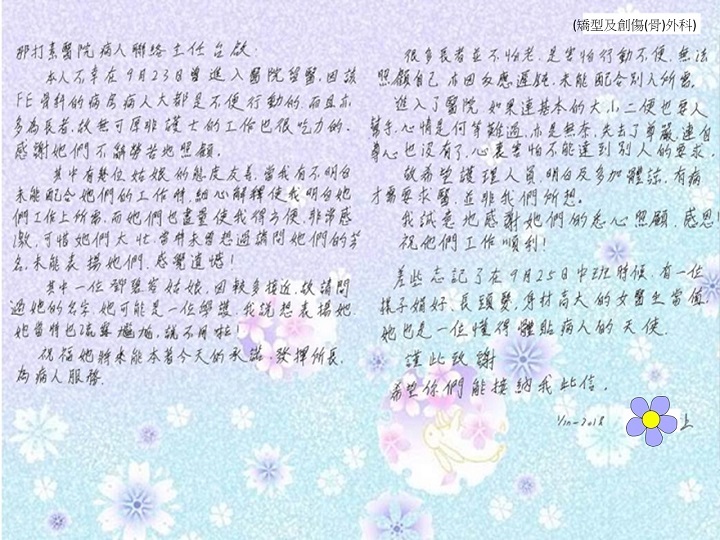 (矯型及創傷(骨)外科)
那打素醫院病人聯絡主任台啟.
本人不幸在9月23日曾進入醫院留醫,因該
FE骨科的病房病人大都是不便行動的,而且亦
多為長者,故無可厚非護士的工作也很吃力的.
感謝她們不辭勞苦地照顧.
其中有幾位姑娘的態度友善,當我有不明白
未能配合她們的工作時,細心解釋使我明白她
們工作上所需,而她們也盡量使我得方便,非常感
激,可惜她們太忙,當時未曾想過請問她們的芳
名,未能表揚她們,感覺遺憾!
其中一位 姑娘,因較多接近,故請問
過她的名字,她可能是一位學護,我說想表揚她.
她當時也流露尷尬,說不用啦!
祝福她將來能本著今天的承諾,發揮所長,
為病人服務.
很多長者並不怕老,是害怕行動不便,無法
照顧自己,亦因反應遲鈍,未能配合別人所需.
進入了醫院,如果連基本的大小二便也要人
幫手,心情是何等難過,亦是無奈,失去了尊嚴,連自
尊心也沒有了,心裏害怕不能達到別人的要求.
故希望護理人員,明白及多加體諒,有病
才需要求醫,並非我們所想.
我誠意地感謝她們的悉心照顧,感恩!
祝她們工作順利!
差些忘記了在9月25日中班時候,有一位
樣子娟好、長頭髮,身材高大的女醫生當值,
她也是一位懂得體貼病人的天使.
謹此致謝
希望你們能接納我此信。
1/10-2018 上